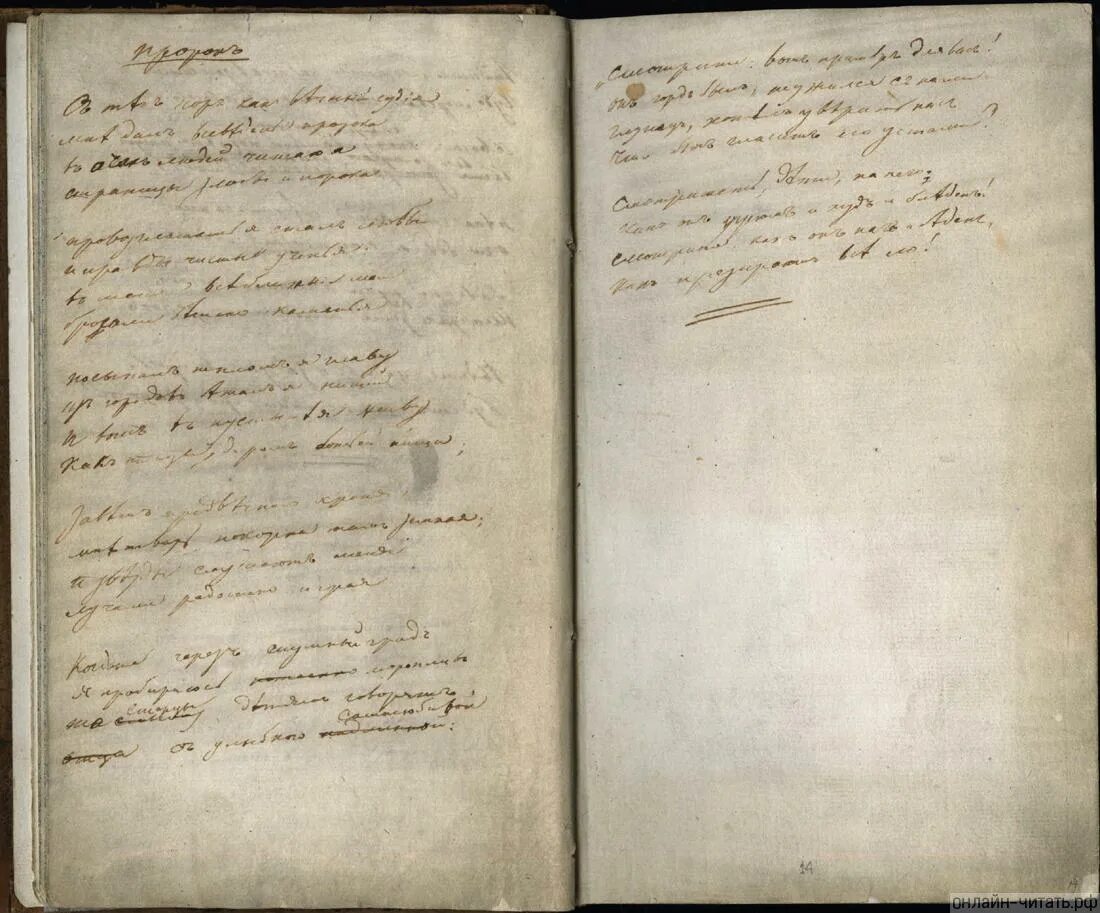 Пророкъ
Съ тѣхъ поръ какъ вѣчный судія
мнѣ далъ всевѣденье пророка
въ очахъ людей читаю я
страницы злобы и порока
провозглашать я сталъ любви
и правды чистыя ученья:
въ меня всѣ ближніе мои
бросали бѣшено каменья
посыпалъ пепломъ я главу
изъ городовъ бѣжалъ я нищій
и вотъ въ пустынѣ я живу
какъ птицы, даромъ божьей пищи;
Завѣтъ предвѣчнаго храня,
мнѣ тварь покорна тамъ земная;
и звѣзды слушаютъ меня
лучами радостно играя
Когда же черезъ шумный градъ
Я пробираюсь торопливо
то старцы дѣтямъ говорятъ
съ улыбкою самолюбивой:
„Смотрите: вотъ примѣръ для васъ!
онъ гордъ былъ, не ужился съ нами
глупецъ, хотѣлъ увѣрить насъ
что богъ гласитъ его устами!
Смотрите жъ, дѣти, на него:
какъ онъ угрюмъ и худъ и блѣденъ!
смотрите, какъ онъ нагъ и бѣденъ,
какъ презираютъ всѣ его!
14
онлайн-читать.рф